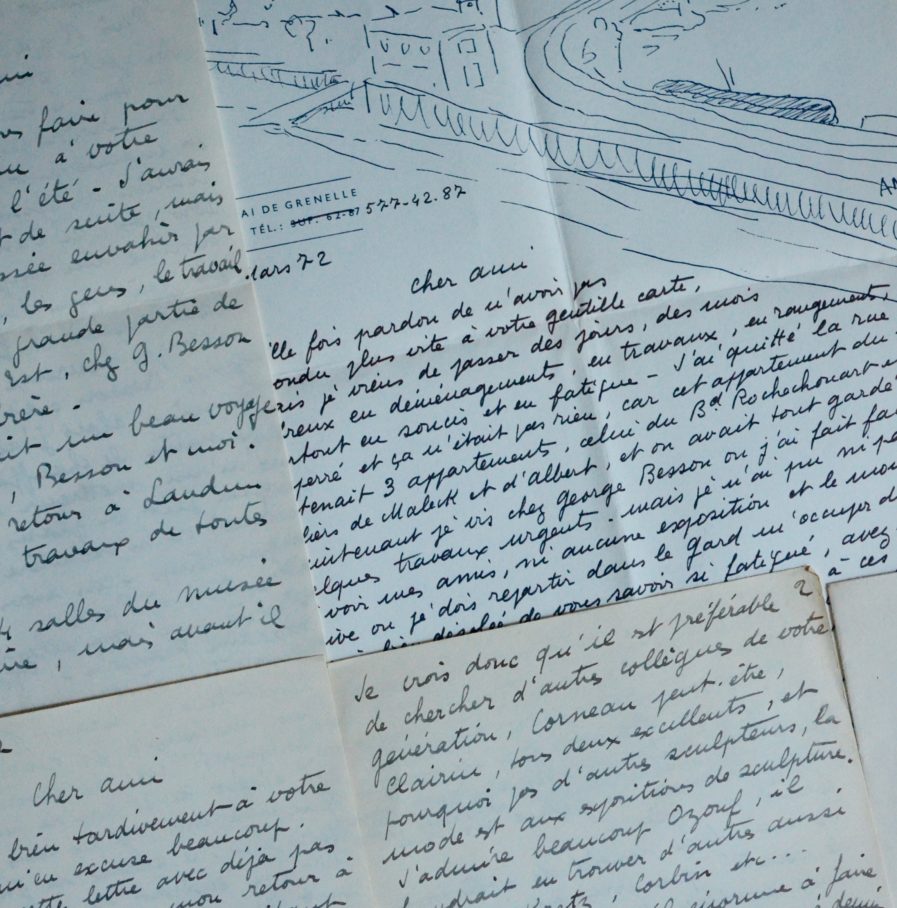 ami
faire pour
à votre
l'été - J'aurais
de suite, mais
envahir par
, les gens, le travail
grande partie de
Est, chez G. Besson
frère -
ait un beau voyage
, Besson et moi.
retour à Laudun
travaux de toutes
4 salles du musée
, mais avant il
AI DE GRENELLE
TÉL.: SUF. 62-87 577-42.87
mars 72
Cher ami
lle fois pardon de n'avoir pas
ondu plus vite à votre gentille carte,
mais je viens de passer des jours, des mois
reux en déménagements, en travaux, en rangement,
rtout en soucis et en fatigue - J'ai quitté la rue
erré et ça n'était pas rien, car cet appartement du
tenait 3 appartements, celui du Bd Rochechouart et
liers de Maleck et d'Albert, et on avait tout gardé
aintenant je vis chez George Besson où j'ai fait fai
elques travaux urgents - mais je n'ai pu ni
voir mes amis, ni aucune exposition et le mo
ive où je dois repartir dans le Gard m'occuper d
bien désolée de vous savoir si fatigué, avez
à ces
2
Je crois donc qu'il est préférable
de chercher d'autres collègues de votre
génération, Corneau peut-être,
Clairin, tous deux excellents, et
pourquoi pas d'autres sculpteurs, la
mode est aux expositions de sculpture.
J'admire beaucoup Ozouf, il
faudrait en trouver d'autres aussi
, Corbin etc...
à faire
Cher ami
bien tardivement à votre
m'en excuse beaucoup.
lettre avec déjà pas
mon retour à